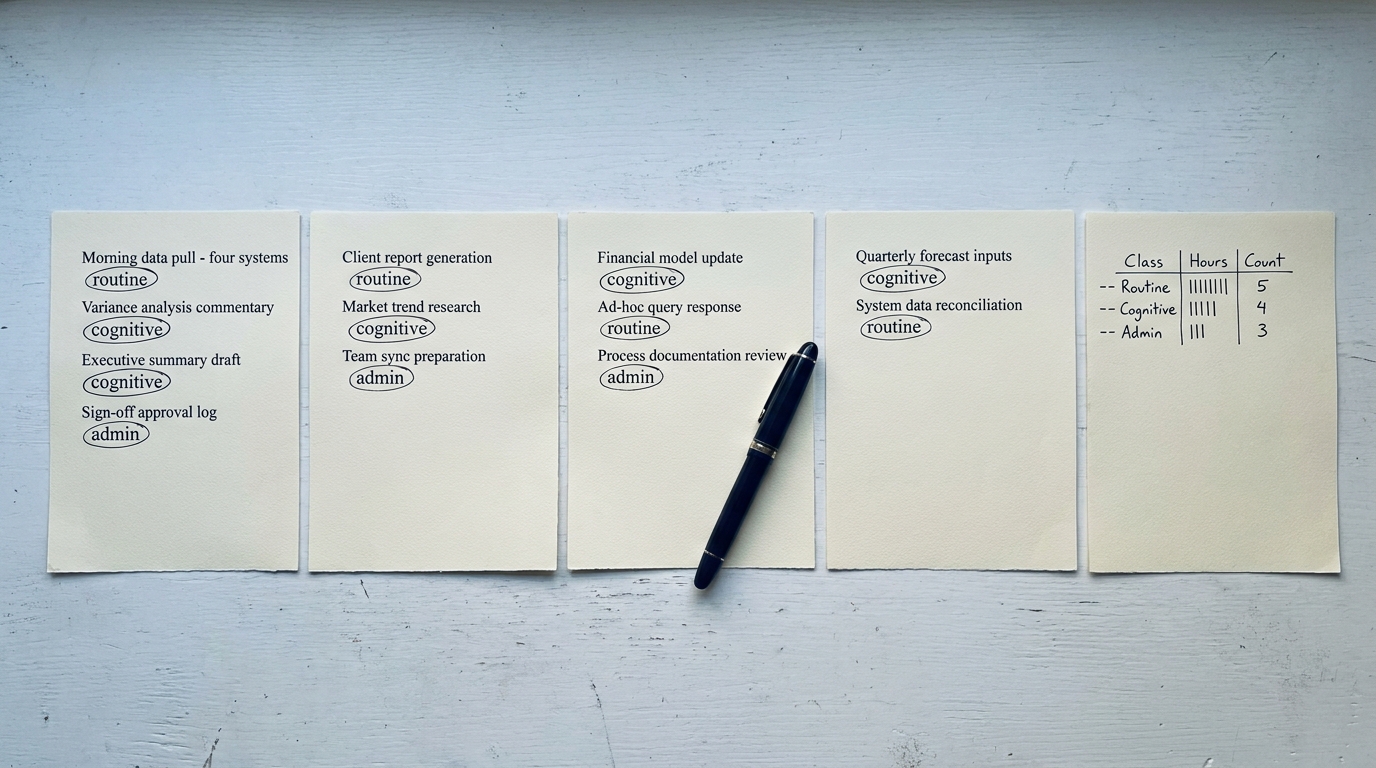 Morning data pull - four systems
routine
Variance analysis commentary
cognitive
Executive summary draft
cognitive
Sign-off approval log
admin
Client report generation
routine
Market trend research
cognitive
Team sync preparation
admin
Financial model update
cognitive
Ad-hoc query response
routine
Process documentation review
admin
Quarterly forecast inputs
cognitive
System data reconciliation
routine
Class | Hours | Count
-- Routine | |||||||| | 5
-- Cognitive | ||||| | 4
-- Admin | ||| | 3